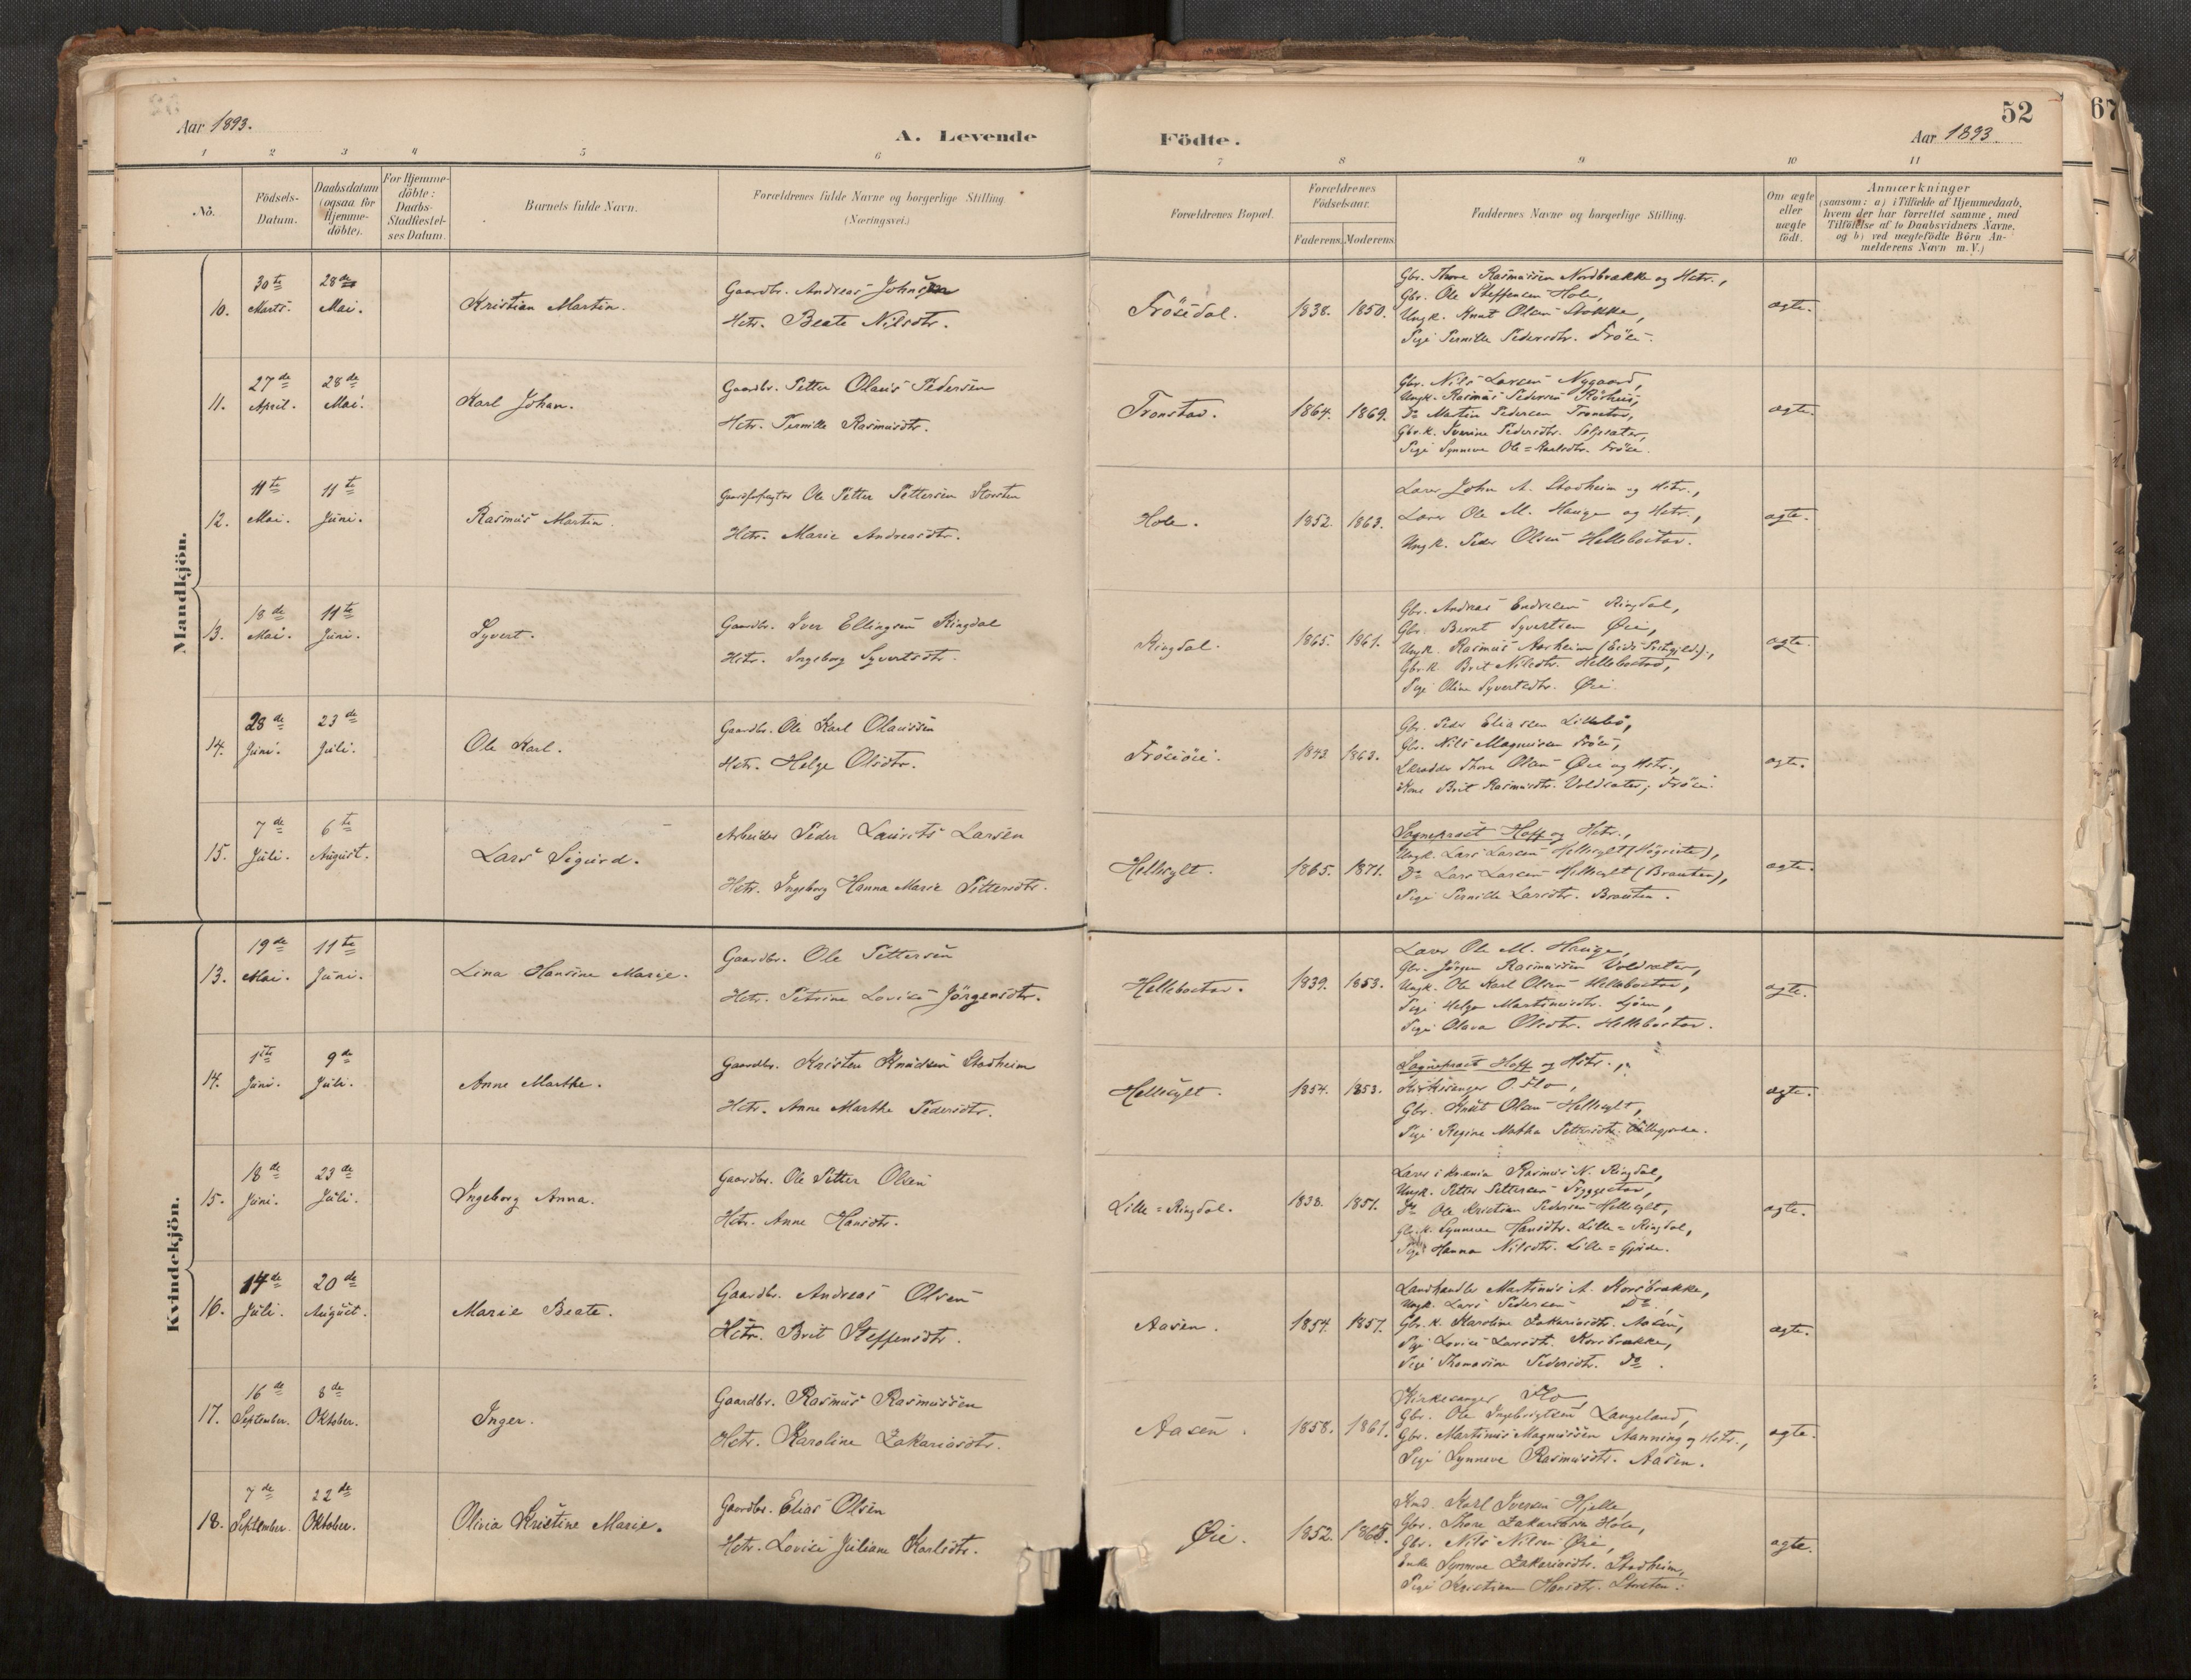 52
67
Aar 1893.
A. Levende
Födte.
Aar 1893
1 2 3 4 5 6 7 8 9 10 11
No.
Födsels-
Datum.
Daabsdatum
(ogsaa for
Hjemme-
döbte).
For Hjemme-
döbte:
Daabs-
Stadfæstel-
ses Datum.
Barnets fulde Navn.
Forældrenes fulde Navne og borgerlige Stilling
(Næringsvei.)
Forældrenes Bopæl.
Forældrenes
Födselsaar.
Faderens. Moderens.
Faddernes Navne og borgerlige Stilling.
Om ægte
eller
uægte
födt.
Anmærkninger
(saasom: a) i Tilfælde af Hjemmedaab,
hvem der har forrettet samme, med
Tilföielse af to Daabsvidners Navne,
og b) ved uægtefödte Börn An-
melderens Navn m. V.)
Mandkjön.
10.
30te
Marts.
28de
Mai.
Kristian Martin.
Gaardbr. Andreas Johnsen
Hstr. Beate Nilsdtr.
Fröisdal.
1838. 1850.
Gbr. Thore Rasmussen Nordbrække og Hstr.,
Gbr. Ole Steffensen Hole,
Ungk. Knut Olsen Stokke,
Pige Pernille Pedersdtr. Fröis.
ægte.
11.
27de
April.
28de
Mai.
Karl Johan.
Gaardbr. Petter Olaus Pedersen
Hstr. Pernille Rasmusdtr.
Tronstad.
1864. 1869.
Gbr. Nils Larsen Nygaard,
Ungk. Rasmus Pedersen Röshus,
Do Martin Pedersen Tronstad,
Gbr.k. Iverine Pedersdtr. Seljesæter,
Pige Synneve Ole=Karlsdtr. Fröise.
ægte.
12.
11te
Mai.
11te
Juni.
Rasmus Martin.
Ole Petter Pettersen Storsten
Hstr. Marie Andreasdtr.
Hole.
1852. 1863.
Lærer John A. Stadheim og Hstr.,
Lærer Ole M. Hauge og Hstr.,
Ungk. Peder Olsen Hellebostad.
ægte.
13.
18de
Mai.
11te
Juni.
Syvert.
Gaardbr. Iver Ellingsen Ringdal
Hstr. Ingeborg Syvertsdtr.
Ringdal.
1865. 1861.
Gbr. Andreas Endresen Ringdal,
Gbr. Bernt Syvertsen Øie,
Ungk. Rasmus Aarheim (Eids Prstgjeld).,
Gbr.k. Brit Nilsdtr. Hellebostad,
Pige Oline Syvertsdtr. Øie.
ægte.
14.
28de
Juni.
23de
Juli.
Ole Karl.
Gaardbr. Ole Karl Olaussen
Hstr. Helge Olsdtr.
Fröisöie.
1843 1863.
Gbr. Peder Eliassen Lillebö,
Gbr. Nils Magnusen Fröis,
Skrædder Thore Olsen Øie og Hstr.,
Kone Brit Rasmusdtr. Voldsæter, Fröis.
ægte.
15.
7de
Juli.
6te
August.
Lars Sigurd.
Arbeider Peder Laurits Larsen
Hstr. Ingeborg Hanna Marie Pettersdtr.
Hellesylt.
1865. 1871.
Sogneprest Hoff og Hstr.,
Ungk. Lars Larsen Hellesylt (Högreite),
Do Lars Larsen Hellesylt (Brauten),
Pige Pernille Larsdtr. Brauten.
ægte.
Kvindekjön.
13.
19de
Mai.
11te
Juni.
Lina Hansine Marie.
Gaardbr. Ole Pettersen
Hstr. Petrine Lovise Jörgensdtr.
Hellebostad.
1839. 1853.
Lærer Ole M. Hauge,
Gbr. Jörgen Rasmussen Voldsæter,
Ungk. Ole Karl Olsen Hellebostad,
Pige Helga Martinusdtr. Ljöen,
Pige Olava Olsdtr. Hellebostad.
ægte.
14.
1ste
Juni.
9de
Juli.
Anne Marthe.
Gaardbr. Kristen Knudsen Stadheim
Hstr. Anne Marthe Pedersdtr.
Hellesylt.
1854. 1853.
Sogneprest Hoff og Hstr.,
Kirkesanger O. Flo,
Gbr. Knut Olsen Hellesylt,
Pige Regine Mathea Pettersdtr. Lillegjerde.
ægte.
15.
18de
Juni.
23de
Juli.
Ingeborg Anna.
Gaardbr. Ole Petter Olsen
Hstr. Anne Hansdtr.
Lille=Ringdal.
1838. 1851.
Rasmus N. Ringdal,
Ungk. Petter Pettersen Tryggestad,
Do Ole Kristian Pedersen Hellesylt,
Gbr.k. Synneve Hansdtr. Lille=Ringdal,
Pige Hanna Nilsdtr. Lille=Gjerde.
ægte.
16.
14de
Juli.
20de
August.
Marie Beate.
Gaardbr. Andreas Olsen
Hstr. Brit Steffensdtr.
Aasen.
1854 1857.
Landhandler Martinus A. Korsbrække,
Ungk. Lars Pedersen Do,
Gbr.k. Karoline Zakariasdtr. Aasen,
Pige Lovise Larsdtr. Korsbrække,
Pige Thomasine Pedersdtr. Do.
ægte.
17.
16de
September.
8de
Oktober.
Inger.
Gaardbr. Rasmus Rasmussen
Hstr. Karoline Zakariasdtr.
Aasen.
1858. 1861.
Kirkesanger Flo,
Gbr. Ole Ingebrigtsen Langeland,
Gbr. Martinus Magnussen Nanning og Hstr.,
Pige Synneve Rasmusdtr. Aasen.
ægte.
18.
7de
September.
22de
Oktober.
Olivia Kristine Marie.
Gaardbr. Elias Olsen
Hstr. Lovise Juliane Karlsdtr.
Øie.
1852. 1865.
Karl Iversen Hjelle,
Gbr. Thore Zakariassen Hole,
Gbr. Nils Nilsen Øie,
Enke Synneve Zakariasdtr. Stadheim,
Pige Kristiane Hansdtr. Storsten.
ægte.